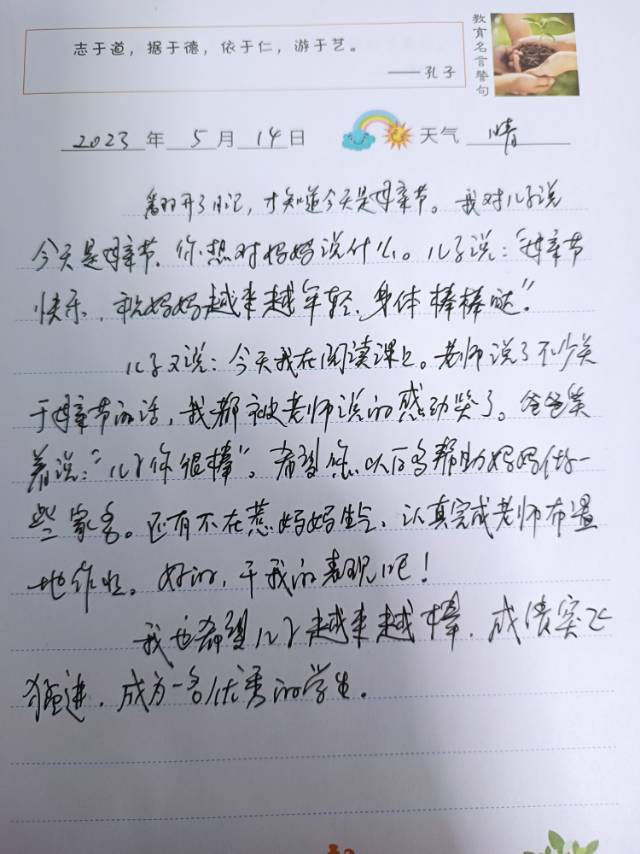 志于道，据于德，依于仁，游于艺。
——孔子
教育名言警句
2023年5月14日 天气 晴
翻开了日记，才知道今天是母亲节。我对儿子说
今天是母亲节，你想对妈妈说什么。儿子说："母亲节
快乐，祝妈妈越来越年轻，身体棒棒哒"。
儿子又说：今天我在阅读课上。老师说了不少关
于母亲节的话，我都被老师说的感动哭了。爸爸笑
着说："儿子你很棒"。希望您以后多帮助妈妈做一
些家务。还有不在惹妈妈生气，认真完成老师布置
地作业。好的，干我的表现吧！
我也希望儿子越来越棒，成绩突飞
猛进，成为一名优秀的学生。